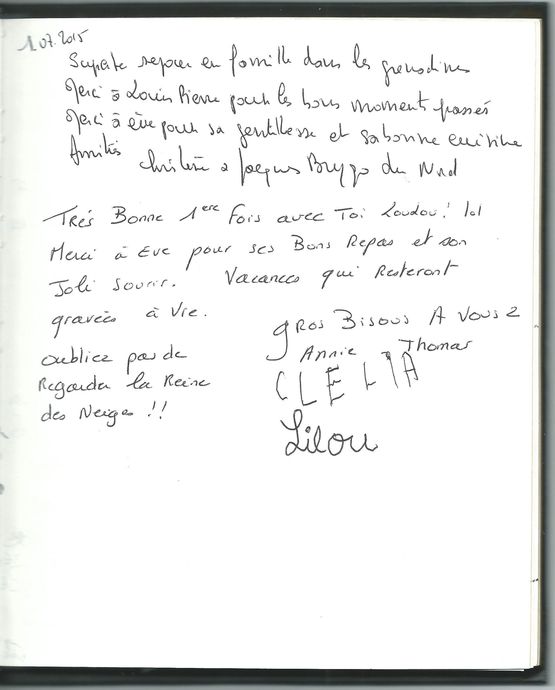 1 07.2015
Superbe sejour en famille dans les grenadines
Merci à Louis Pierre pour les bons moments passés
Merci à eve pour sa gentillesse et sa bonne cuisine
Amitiés Christine a Jacques du Nord
Très Bonne 1ère Fois avec Toi Loulou! lol
Merci à Eve pour ses Bons Repas et son
Joli sourir. Vacances qui Resteront
gravées à Vie.
gros Bisous A vous 2
oubliez pas de
Annie Thomas
Regarder la Reine
CLELIA
des Neiges !!
Lilou